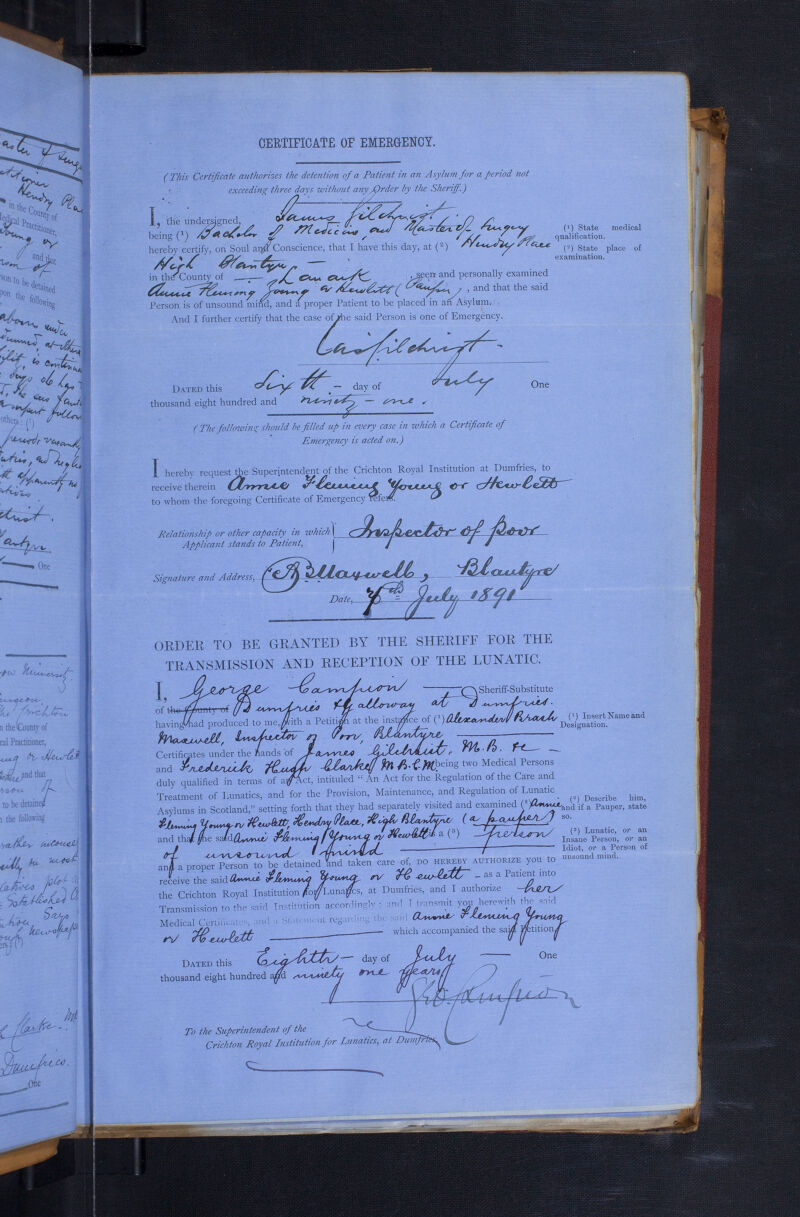 CERTIFICATE OF EMERGENCY.
(This Certificate authorizes the detention of a Patient in an Asylum for a period not
exceeding three days without any Order by the Sheriff.)
I, the undersigned, James Gilchrist
being (1) Bachelor of Medicine and Master of Surgery
(1) State medical
qualification.
hereby certify, on Soul and Conscience, that I have this day, at (2) Hendry Place
(2) State place of
examination.
High Blantyre
in the County of Lanark, seen and personally examined
Annie Fleming Young or Hewlett (Pauper), and that the said
Person is of unsound mind, and a proper Patient to be placed in an Asylum.
And I further certify that the case of the said Person is one of Emergency.
Jas Gilchrist
DATED this Sixth day of July One
thousand eight hundred and ninety-one.
(The following should be filled up in every case in which a Certificate of
Emergency is acted on.)
I hereby request the Superintendent of the Crichton Royal Institution at Dumfries, to
receive therein Annie Fleming Young or Hewlett
to whom the foregoing Certificate of Emergency refers.
Relationship or other capacity in which Inspector of Poor
Applicant stands to Patient,
Signature and Address, AB Maxwell, Blantyre
Date, 7th July 1891
ORDER TO BE GRANTED BY THE SHERIFF FOR THE
TRANSMISSION AND RECEPTION OF THE LUNATIC.
I, George Campion Sheriff-Substitute
of the County of Dumfries & Galloway at Dumfries.
having had produced to me, with a Petition at the instance of (1) Alexander Brash
(1) Insert Name and
Designation.
Maxwell, Inspector of Poor, Blantyre
Certificates under the hands of James Gilchrist, M.B. &c
and Frederick Hugh Clarke M.B.C.M. being two Medical Persons
duly qualified in terms of an Act, intituled "An Act for the Regulation of the Care and
Treatment of Lunatics, and for the Provision, Maintenance, and Regulation of Lunatic
Asylums in Scotland," setting forth that they had separately visited and examined (2) Annie
(2) Describe him,
and if a Pauper, state
so.
Fleming Young or Hewlett, Hendry Place, High Blantyre (a pauper)
and that the said Annie Fleming Young or Hewlett is a (3) person
(3) Lunatic, or an
Insane Person, or an
Idiot, or a Person of
unsound mind.
of unsound mind
and a proper Person to be detained and taken care of, DO HEREBY AUTHORIZE you to
receive the said Annie Fleming Young or Hewlett - as a Patient into
the Crichton Royal Institution for Lunatics, at Dumfries, and I authorize her
Transmission to the said Institution accordingly; and I transmit you herewith the said
Medical Certificates, and a Statement regarding the said Annie Fleming Young
or Hewlett which accompanied the said Petition.
DATED this Eighth day of July One
thousand eight hundred and ninety one years
Geo. Campion
To the Superintendent of the
Crichton Royal Institution for Lunatics, at Dumfries.